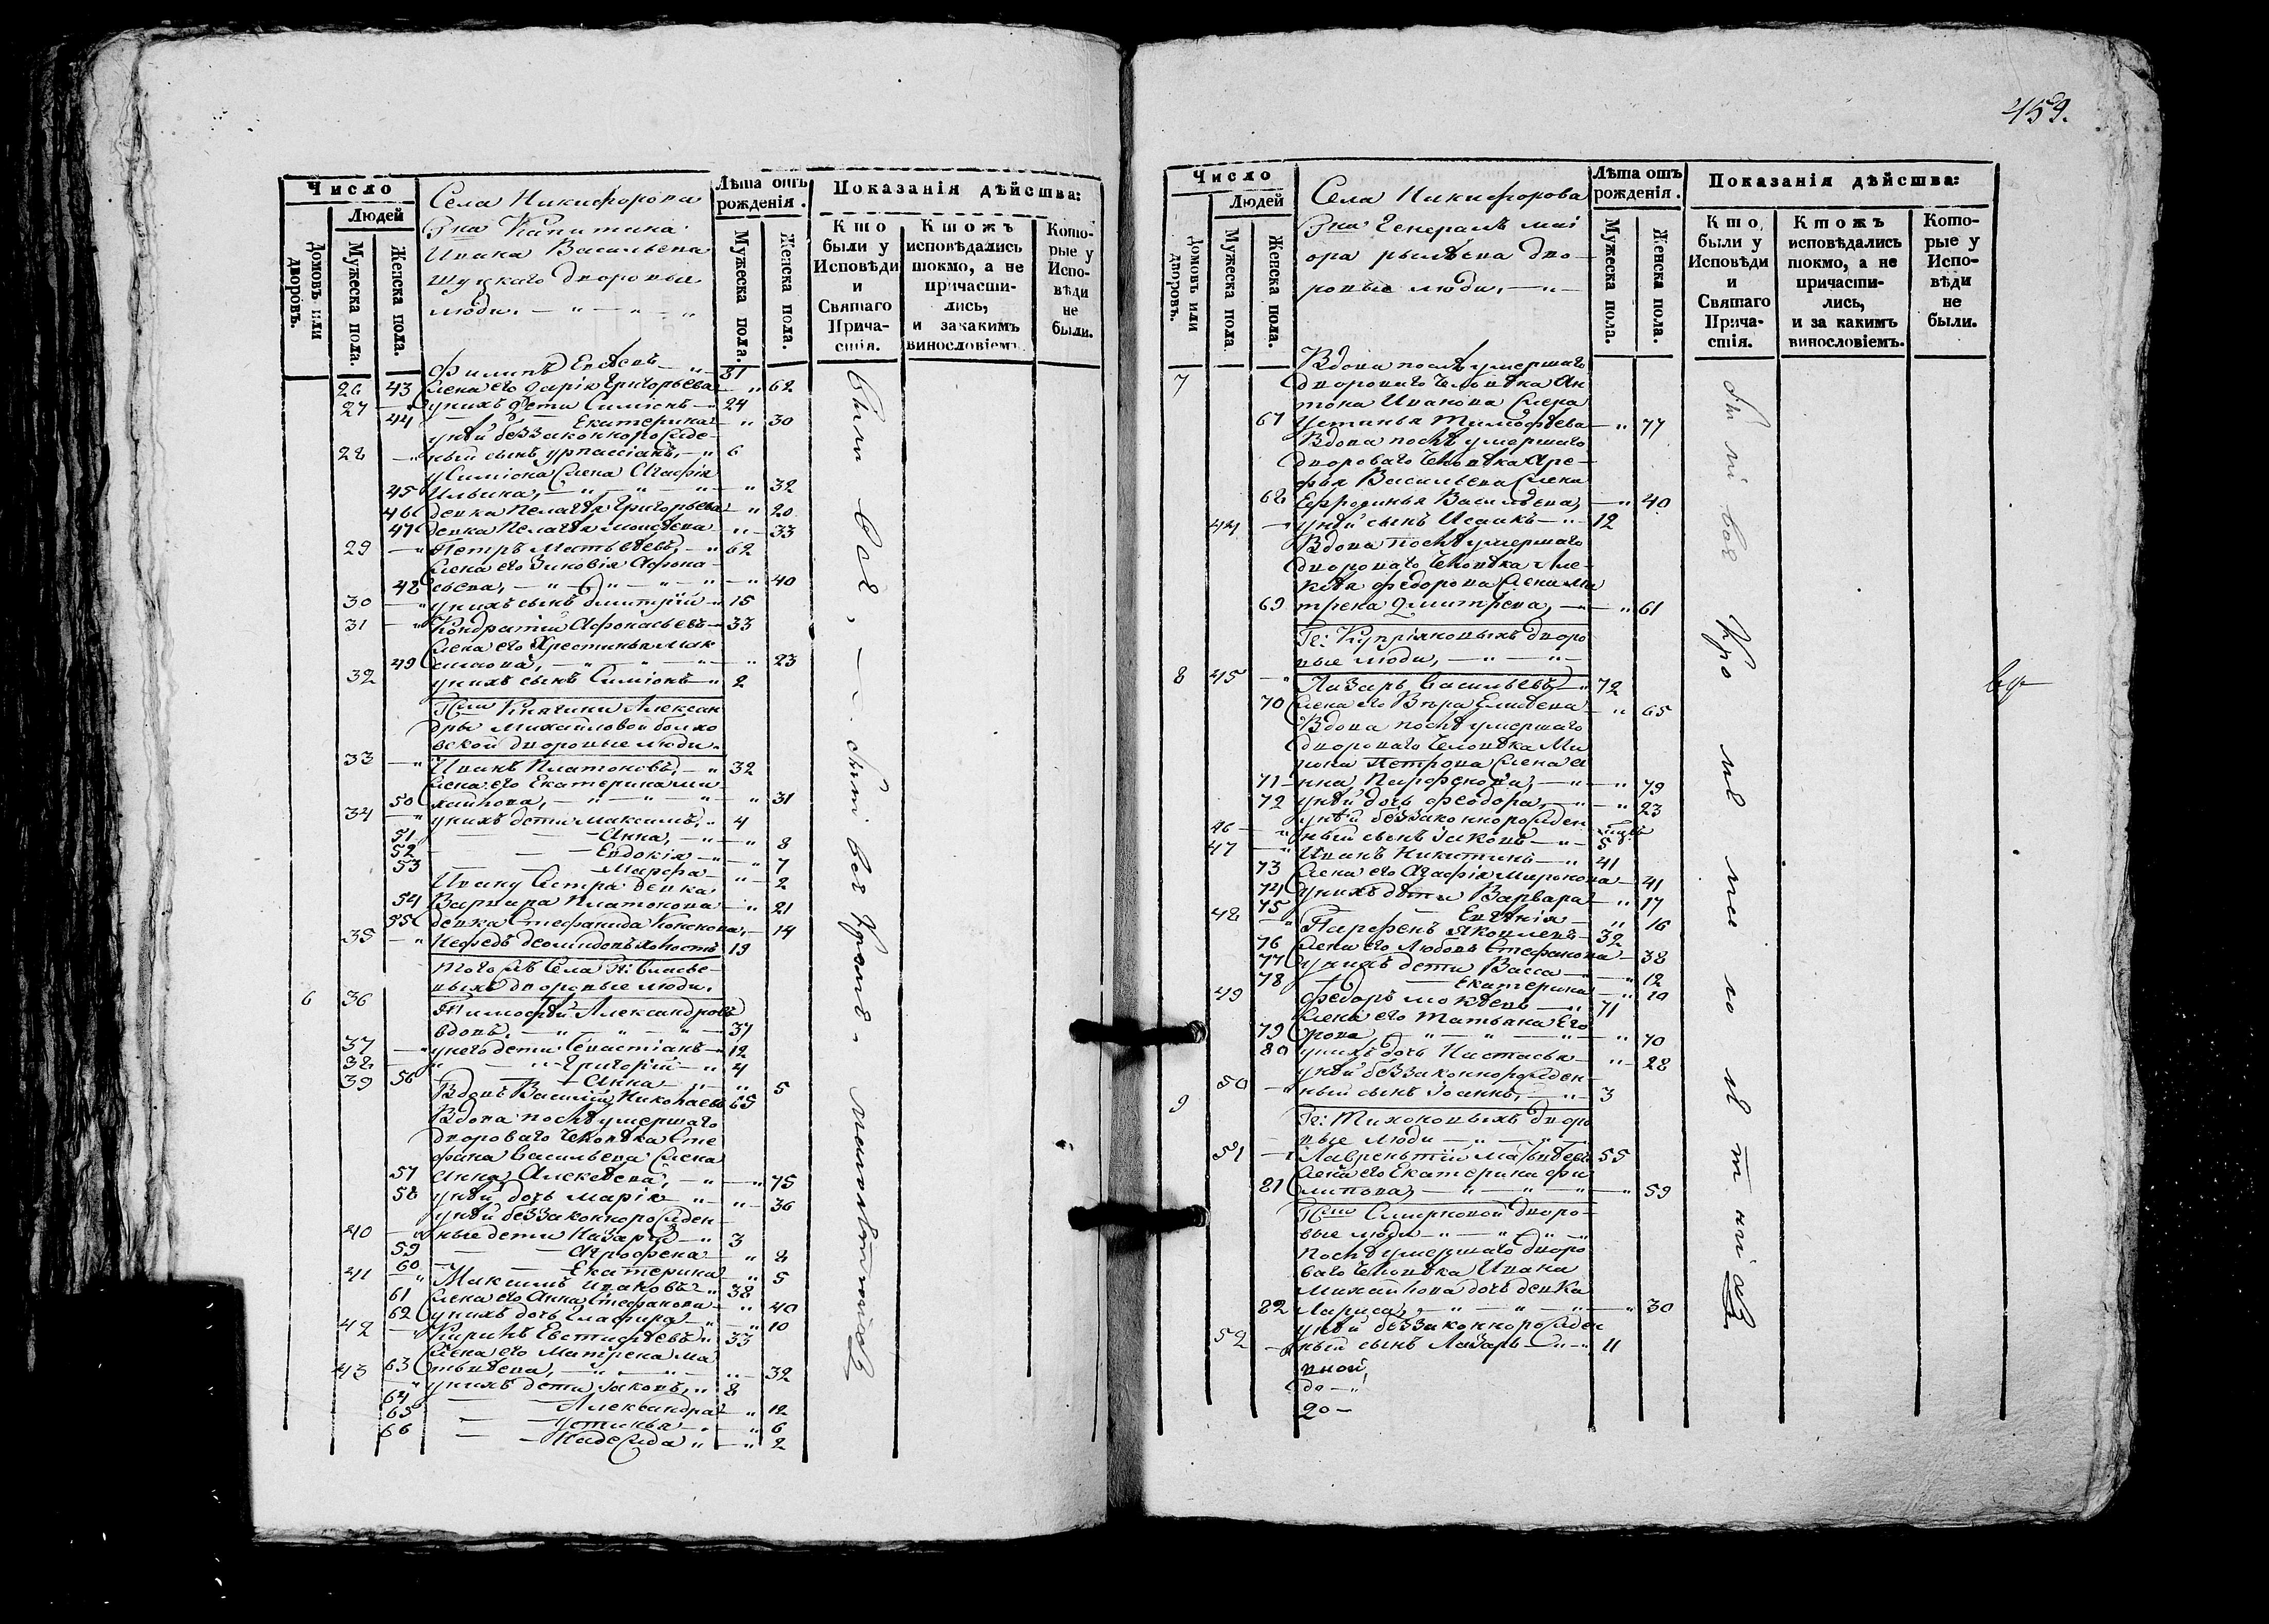 459.
Число
Людей
Домовъ или дворовъ.
Мужеска пола.
Женска пола.
Села Никифорова
Гна Капитана
Ивана Васильева
Шуцкаго дворовыя
люди. — " — " — "
Лѣта отъ рожденія.
Мужеска пола.
Женска пола.
Показанія дѣйства:
Кто были у Исповѣди и Святаго Причастія.
Ктожъ исповѣдались токмо, а не причастились, и за какимъ винословіемъ.
Которые у Исповѣди не были.
Филипъ Евсѣевъ — " 81
26 43 жена его Дарія Григорьева — " 62
27 — " у нихъ дети Симіонъ — " 24
44 — Екатерина — " 30
у нѣй беззаконнорожде-
28 — " ный сынъ — " 6
у Симіона жена Агафія
45 Ильина, — " — " — " 32
46 девка Пелагѣя Григорьева — " 20
47 девка Пелагѣя Моисѣева — " 33
29 — " Петръ Матьвѣевъ, — " 62
жена его Зиновія Афона-
48 сьева, — " — " — " 40
30 — " у нихъ сынъ Дмитрій — " 15
31 — " Кондратій Афонасьевъ — 33
жена его Хрестинья Мак
49 симова, — " — " — " 23
32 у нихъ сынъ Симіонъ — " 2
Гжи Княгини Алексан
дры Михайловой Волхо
вской дворовые люди.
33 — " Иванъ Платоновъ, — " 32
жена его Екатерина Ми
50 хайлова, — " — " — " 31
34 — " у нихъ дети Максимъ, " 4
51 — Анна, — " — " 8
52 — Евдокія — " — " 7
53 — Марфа — " — 2
Ивану сестра девка
54 Варвара Платонова — " 21
55 девка Стефанида — 14
35 — " Нефедъ холостъ 19
того жъ Села
дворовые люди.
6 36 Тимофѣй Александровъ
вдовъ, — " — " — " — 37
37 — " у него дети Севастіанъ — " 12
38 — " — " Григорій — " 4
56 — Анна — " — " 5
39 Вдовъ Василій Николаевъ 65
Вдова послѣ умершаго
двороваго человѣка Сте
фана Васильева жена
57 Анна Алексѣева, — " — " 75
58 у нѣй дочь Марія — " — " 36
у нѣй беззаконнорожден-
40 — " ные дети Назарій — " 3
59 — Агрофена — " 8
60 — Екатерина — " 5
41 — " Максимъ Ивановъ — " 38
61 жена его Анна Стефанова — " 40
62 у нихъ дочь Глафира — " — " 10
42 — " Кирилъ Евстифѣевъ " 33
жена его Матрена Ма
63 тьвѣева, — " — " — " 32
43 — " у нихъ дети Іаковъ, " 8
64 — Александра — " 12
65 — Устинья — " 6
66 — Надежда " — " 2
Число
Людей
Домовъ или дворовъ.
Мужеска пола
Женска пола.
Села Никифорова
Гна Генералъ маі
ора Рылѣева дво-
ровые люди, — " —
Лѣта отъ рожденія.
Мужеска пола.
Женска пола.
Показанія дѣйства:
Кто были у Исповѣди и Святаго Причастія.
Ктожъ исповѣдались токмо, а не причастились, и за какимъ винословіемъ.
Которые у Исповѣди не были.
Вдова послѣ умершаго
7 двороваго человѣка Ан
тона Иванова жена
67 Устинья Тимофѣева — " 77
Вдова послѣ умершаго
двороваго человѣка Аре-
фья Васильева жена
68 Ефросинья Васильева, — " 40
44 — " у нѣй сынъ Исаакъ — " 12
Вдова послѣ умершаго
двороваго человѣка Але-
ксѣя Федорова жена Ма
69 трена Дмитрева, — " — " 61
Гс: Купріяновыхъ дворо
вые люди, — " — " —
8 45 — " Лазарь Васильевъ, — " 72
70 жена его Вѣра — " 65
Вдова послѣ умершаго
двороваго человѣка Ми
рона Петрова жена А
71 нна Парфенова, — " — " 79
72 у нѣй дочь Феодора, — " — " 23
у нѣй беззаконнорожден
46 — " ный сынъ Іаковъ — " — 5
47 — " Иванъ Никитинъ — " 41
73 жена его Агафія Миронова — 41
74 у нихъ дети Варвара — " 17
75 — Евгенія — " 16
48 — " Парфенъ Яковлевъ — 32
76 жена его Любовь Стефанова — 38
77 у нихъ дети Васса — " — " 12
78 — Екатерина — " 10
49 Федоръ — " 71
жена его Татьяна Его
79 рова, — " — " — " 70
80 у нихъ дочь Настасья — " — 28
у нѣй беззаконнорожден-
50 — " ный сынъ Іоаннъ, — " — 3
9 Гс: Тихоновыхъ дворо
вые люди — " — " —
51 — " Лаврентій Матьвѣевъ 55
жена его Екатерина Фи
81 липова, — " — " — " 59
Гжи Смирновой дворо-
вые люди — " — " — "
Послѣ умершаго дворо
ваго человѣка Ивана
Михайлова дочь девка
82 Лариса, — " — " — " 30
у нѣй беззаконнорожден
52 — " ный сынъ Лазарь — " — " 11